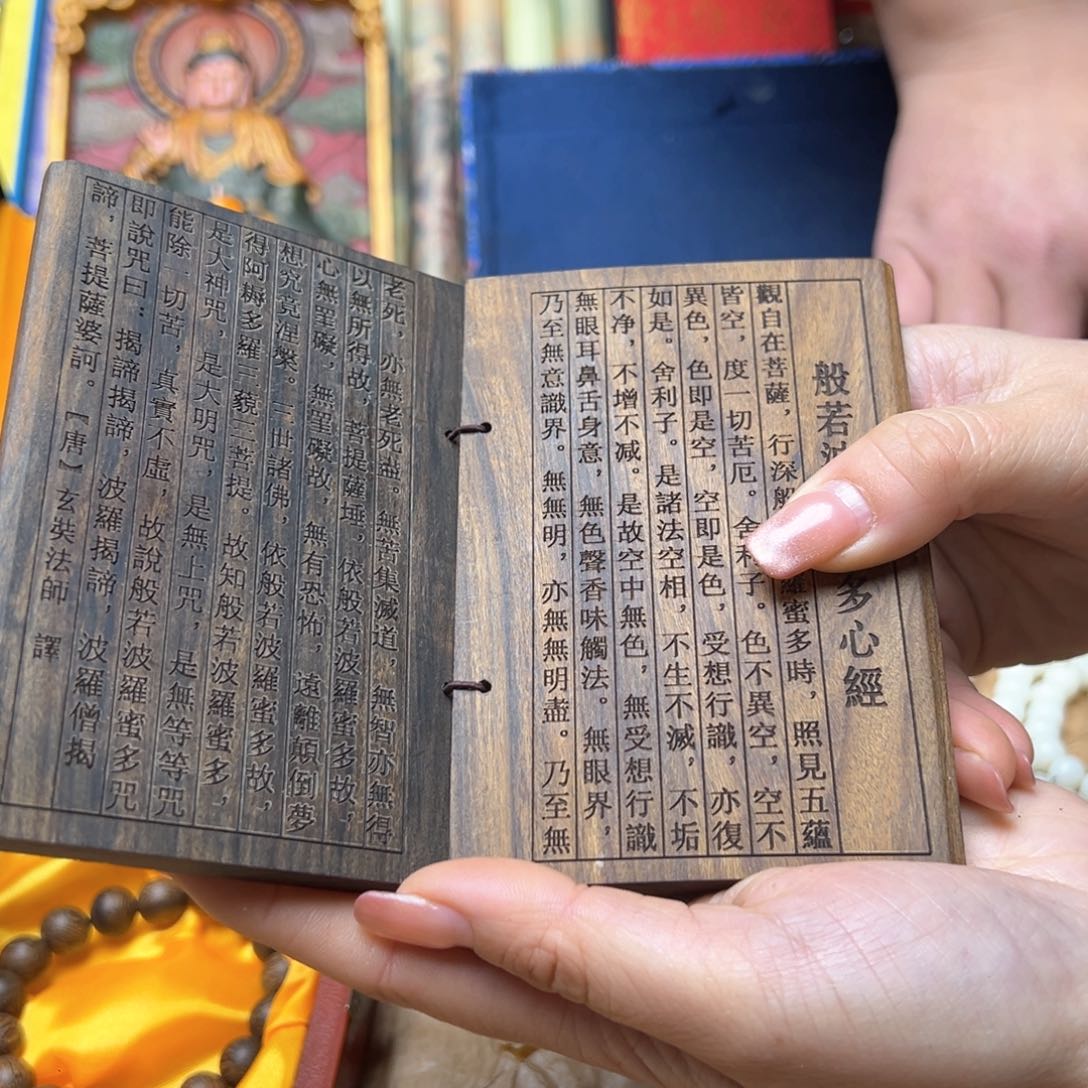 般若 多心經
觀自在菩薩，行深般 羅蜜多時，照見五蘊
皆空，度一切苦厄。舍利子。色不異空，空不
異色，色即是空，空即是色，受想行識，亦復
如是。舍利子。是諸法空相，不生不滅，不垢
不净，不增不减。是故空中無色，無受想行識
無眼耳鼻舌身意，無色聲香味觸法。無眼界，
乃至無意識界。無無明，亦無無明盡。乃至無
老死，亦無老死盡。無苦集滅道，無智亦無得
以無所得故，菩提薩埵，依般若波羅蜜多故，
心無罣礙，無罣礙故，無有恐怖，遠離顛倒夢
想究竟涅槃。三世諸佛，依般若波羅蜜多故，
得阿耨多羅三藐三菩提。故知般若波羅蜜多，
是大神咒，是大明咒，是無上咒，是無等等咒
能除一切苦，真實不虛，故說般若波羅蜜多咒
即說咒曰：揭諦揭諦，波羅揭諦，波羅僧揭
諦，菩提薩婆訶。【唐】玄奘法師 譯